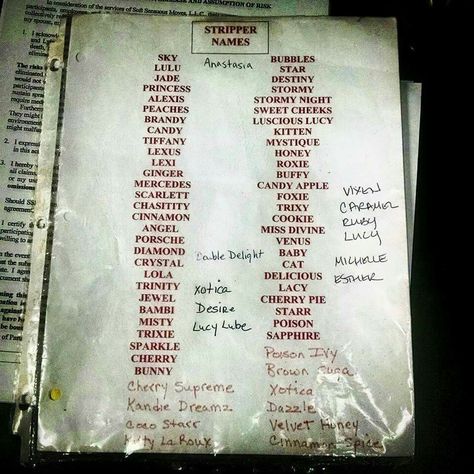 in consideration of the services of Soft Sensuous Moves, L.L.C.
AND ASSUMPTION OF RISK
STRIPPER
NAMES
SKY
LULU
JADE
PRINCESS
ALEXIS
PEACHES
BRANDY
CANDY
TIFFANY
LEXUS
LEXI
GINGER
MERCEDES
SCARLETT
CHASITITY
CINNAMON
ANGEL
PORSCHE
DIAMOND
CRYSTAL
LOLA
TRINITY
JEWEL
BAMBI
MISTY
TRIXIE
SPARKLE
CHERRY
BUNNY
Cherry Supreme
Kandie Dreamz
Coco Starr
Kitty LaRoux
Anastasia
Double Delight
Xotica
Desire
Lucy Lube
BUBBLES
STAR
DESTINY
STORMY
STORMY NIGHT
SWEET CHEEKS
LUSCIOUS LUCY
KITTEN
MYSTIQUE
HONEY
ROXIE
BUFFY
CANDY APPLE
FOXIE
TRIXY
COOKIE
MISS DIVINE
VENUS
BABY
CAT
DELICIOUS
LACY
CHERRY PIE
STARR
POISON
SAPPHIRE
Poison Ivy
Brown Suga
Xotica
Dazzle
Velvet Honey
Cinnamon Spice
VIXEN
CARAMEL
RUBY
LUCY
MICHELLE
ESTHER